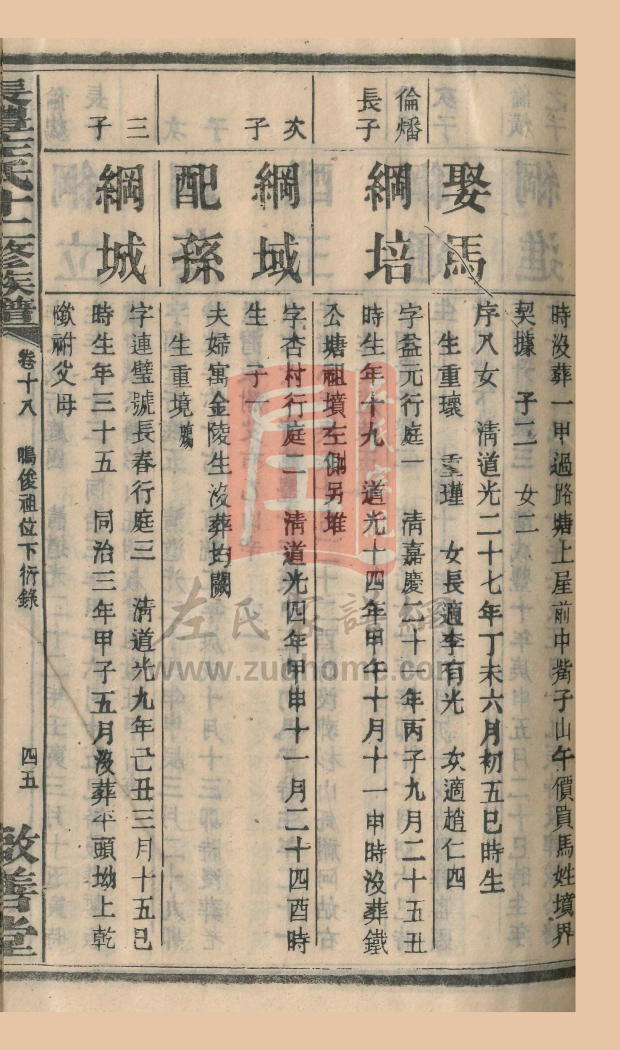 時沒葬一甲過路塘上星前中嘴子山午價買馬姓墳界
契據　子二　女二
娶馬
序八女　清道光二十七年丁未六月初五巳時生
生重瓌　重瑾　女長適李有光　次適趙仁四
倫燔
長子
綱培
字益元行庭一　清嘉慶二十一年丙子九月二十五丑
時生年十九　道光十四年甲午十月十一申時沒葬鐵
公塘祖墳左側另堆
次
子
綱域
字杏村行庭二　清道光四年甲申十一月二十四酉時
生　子一
配孫
夫婦寓金陵生沒葬均闕
生重境
三
子
綱城
字連璧號長春行庭三　清道光九年己丑三月十五巳
時生年三十五　同治三年甲子五月沒葬平頭坳上乾
墩祔父母
長灃左氏十二修族譜
卷十八
鳴俊祖位下衍錄
四五
敬善堂
左氏家譜網
www.zuohome.com